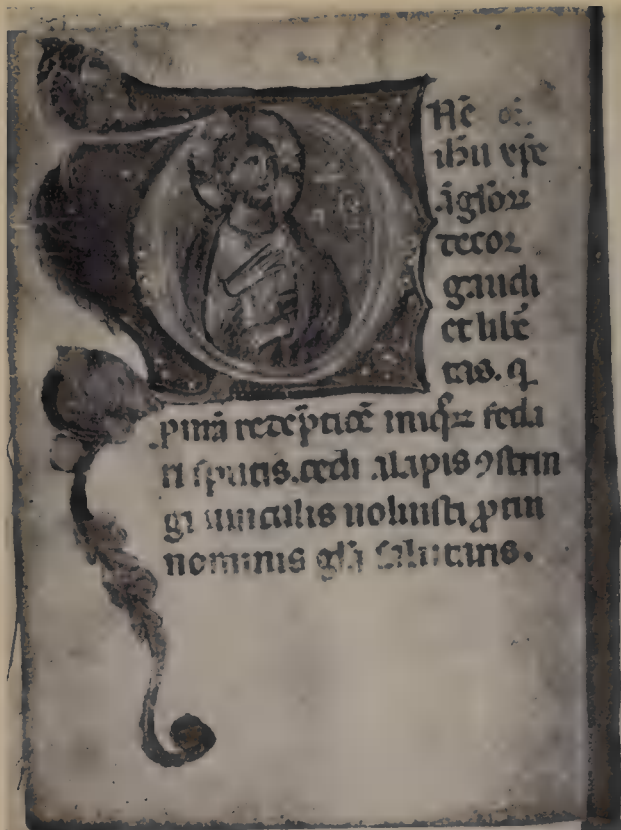 ihu xpe
āgloꝝ
decor
gaudi
et libe
tas. q
redēptiōe iniqꝝ feda
ri sputis. cedi alapis ꝯstrin
gi uinculis uoluisti ꝓ tui
nominis salutaris.